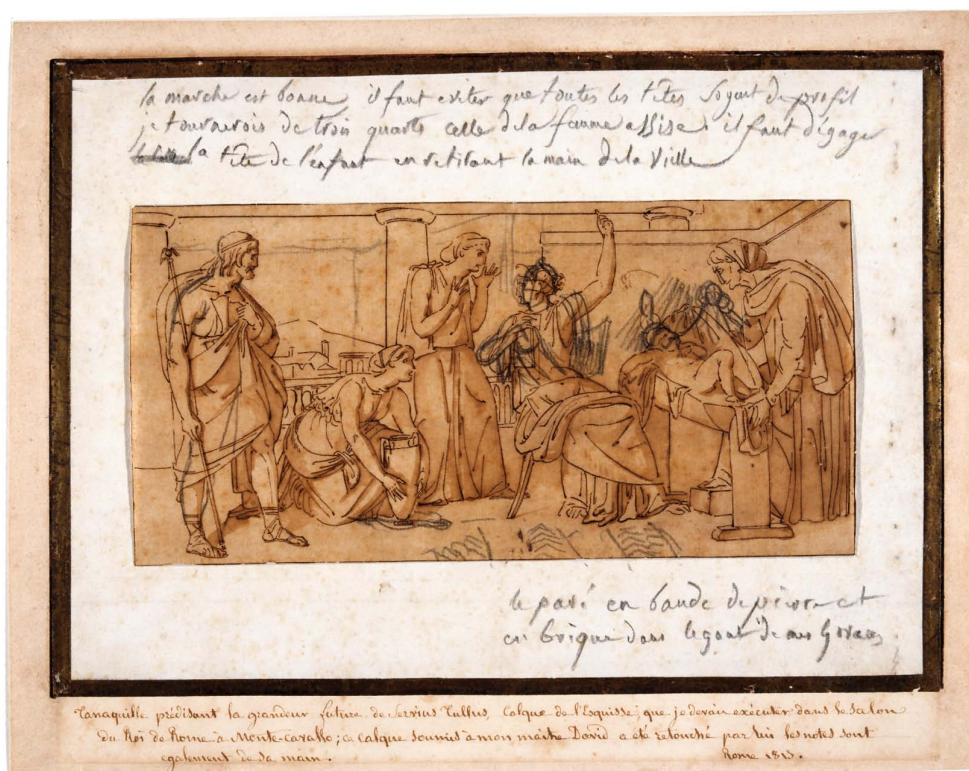 la marche est bonne, il faut eviter que toutes les têtes soyent de profil
je tournerois de trois quarts celle de la femme assise. il faut dégager
la tête de l'enfant en retirant la main de la Vielle
le pavé en bande de pierre et
en brique dans le gout de mes
Tanaquille prédisant la grandeur future de Servius Tullus, Calque de l'Esquisse, que je devais exécuter dans le Salon
du Roi de Rome à Monte-Cavallo; ce calque soumis à mon maitre David a été retouché par lui les notes sont
egalement de sa main.
Rome 1813.